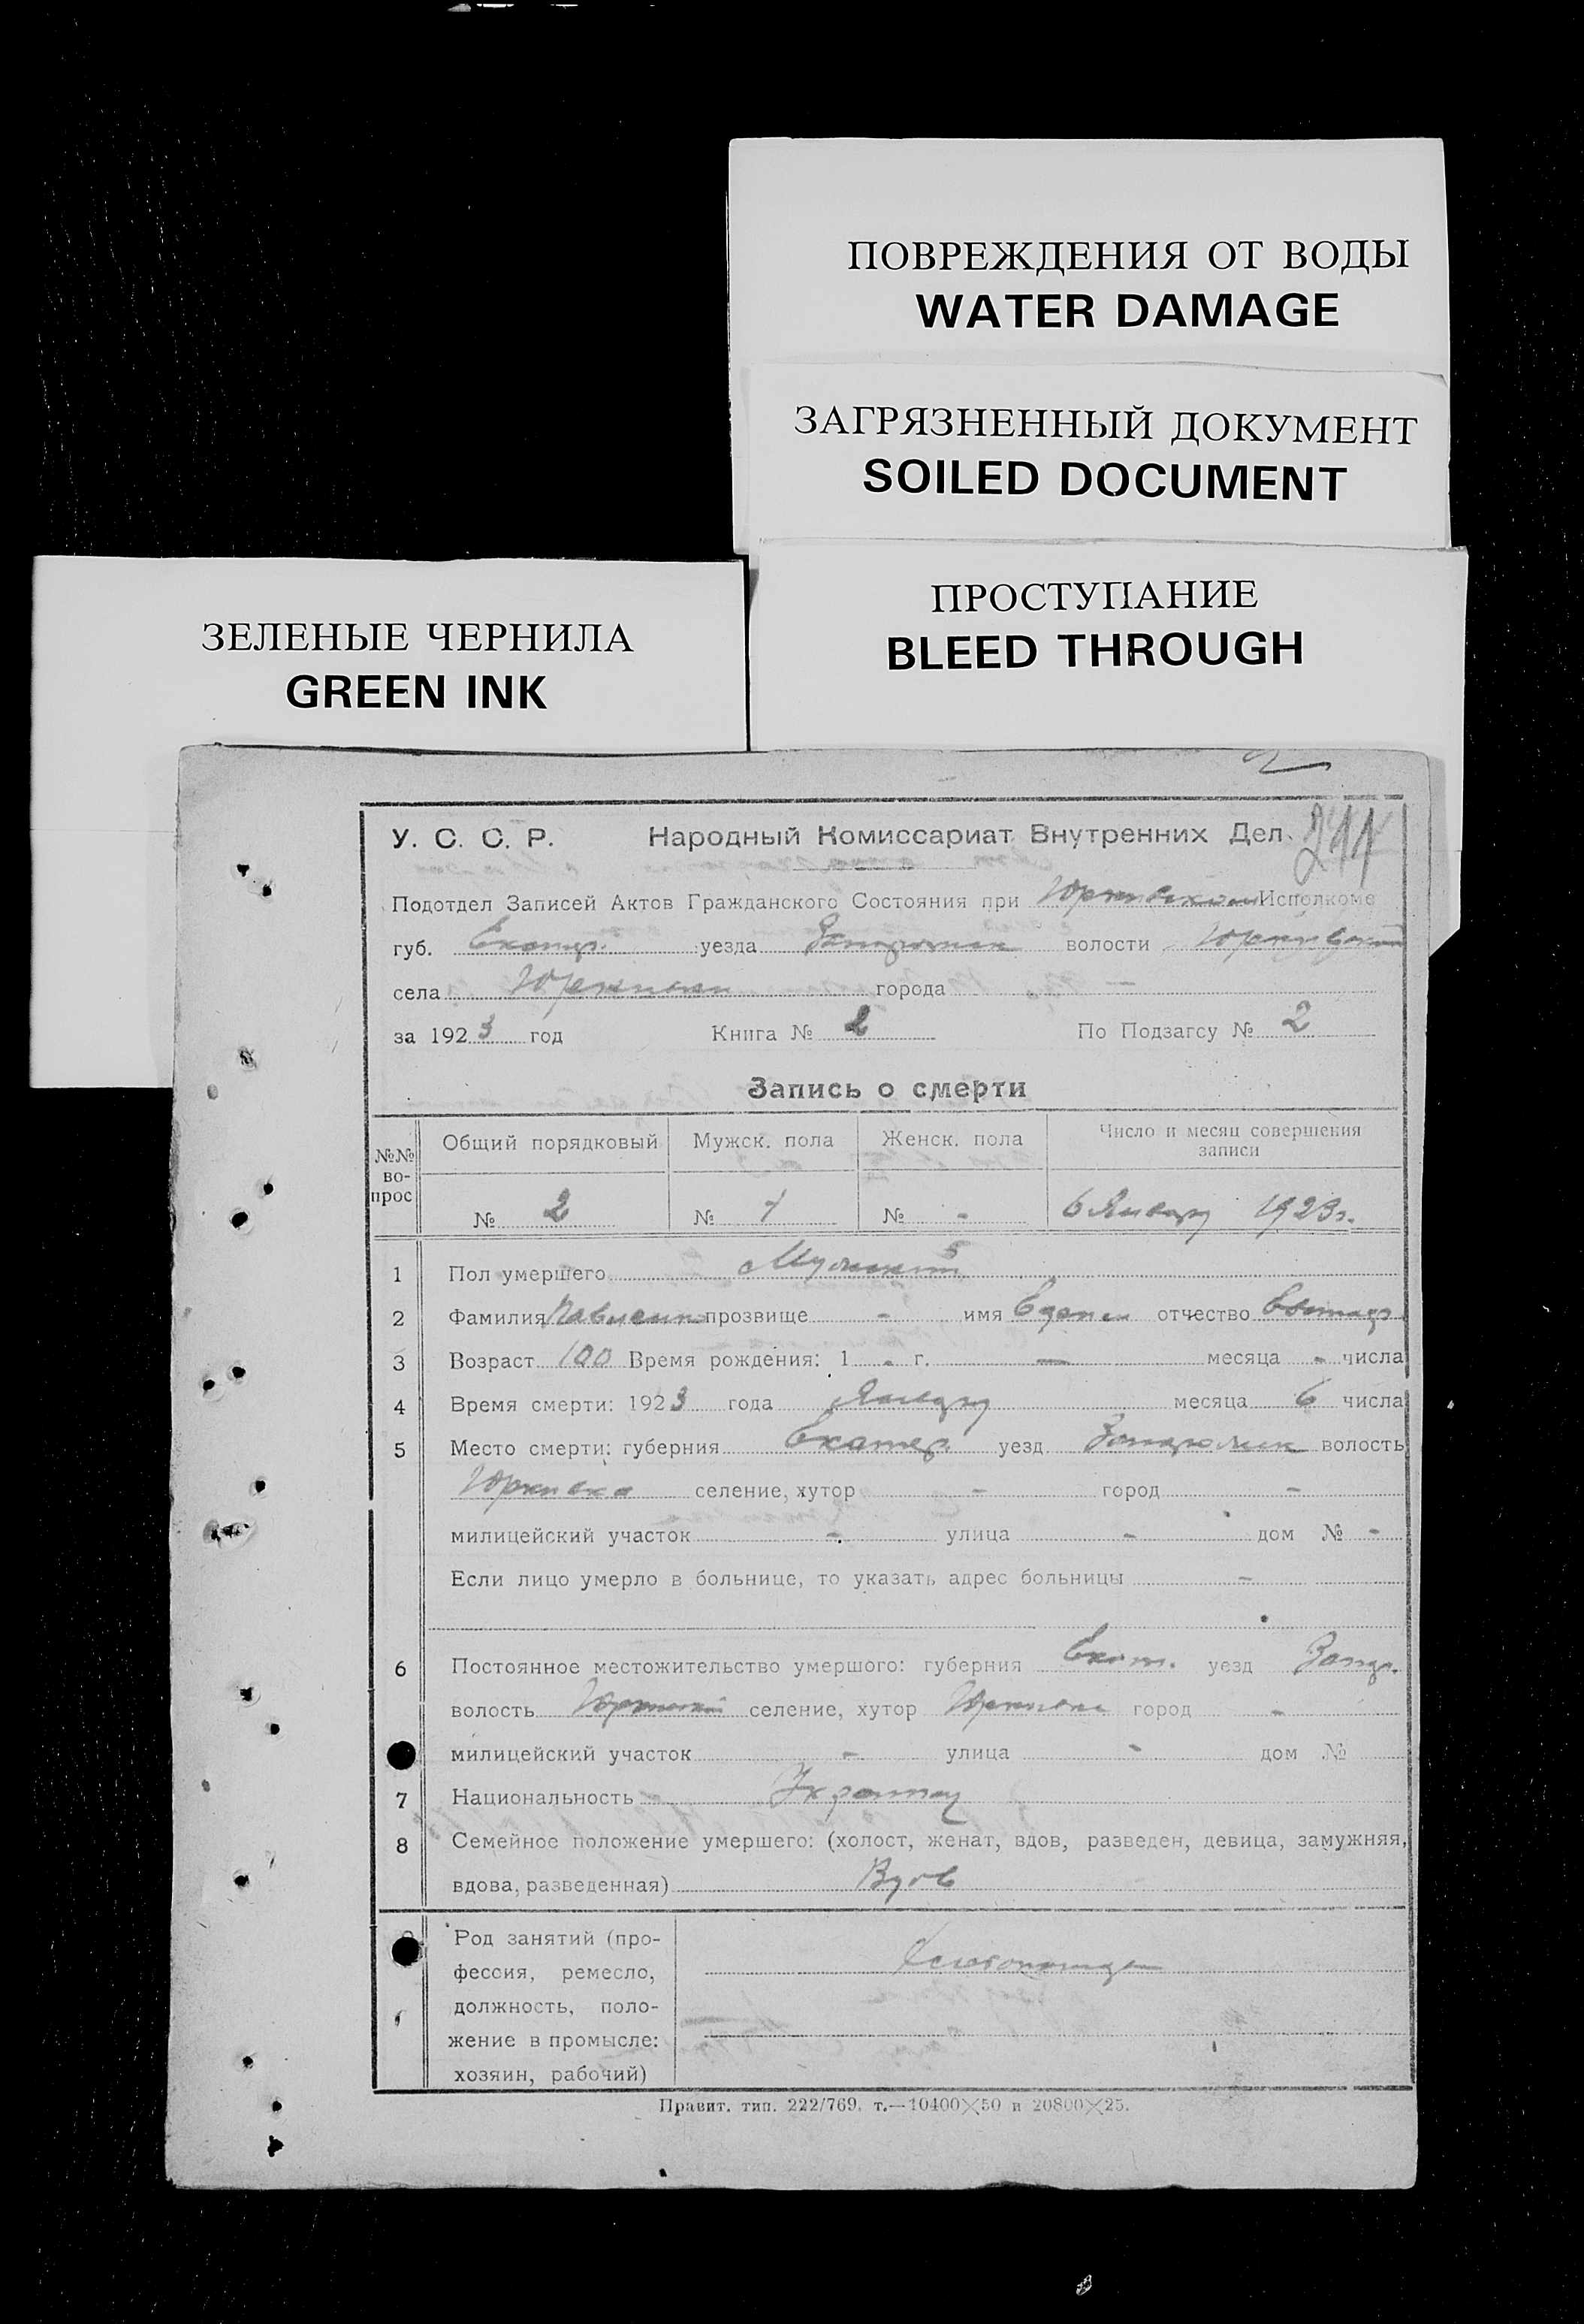 ПОВРЕЖДЕНИЯ ОТ ВОДЫ
WATER DAMAGE
ЗАГРЯЗНЕННЫЙ ДОКУМЕНТ
SOILED DOCUMENT
ПРОСТУПАНИЕ
BLEED THROUGH
ЗЕЛЕНЫЕ ЧЕРНИЛА
GREEN INK
У. С. С. Р. Народный Комиссариат Внутренних Дел. 211
Подотдел Записей Актов Гражданского Состояния при Исполкоме
губ. Екатер. уезда волости
села города -
за 1923 год Книга № 2 По Подзагсу № 2
Запись о смерти
№№ во-прос Общий порядковый Мужск. пола Женск. пола Число и месяц совершения записи
№ 2 № 1 № - 6 Января 1923 г.
1 Пол умершего Мужской
2 Фамилия прозвище - имя отчество
3 Возраст 100 Время рождения: 1 - г. — месяца - числа
4 Время смерти: 1923 года Января месяца 6 числа
5 Место смерти: губерния Екатер. уезд волость
селение, хутор - город -
милицейский участок - улица - дом № -
Если лицо умерло в больнице, то указать адрес больницы -
6 Постоянное местожительство умершого: губерния Екат. уезд Запор.
волость селение, хутор город -
милицейский участок - улица - дом №
7 Национальность
8 Семейное положение умершего: (холост, женат, вдов, разведен, девица, замужняя,
вдова, разведенная) Вдов
Род занятий (про-
фессия, ремесло,
должность, поло-
жение в промысле:
хозяин, рабочий)
Правит. тип. 222/769. т.—10400×50 и 20800×25.